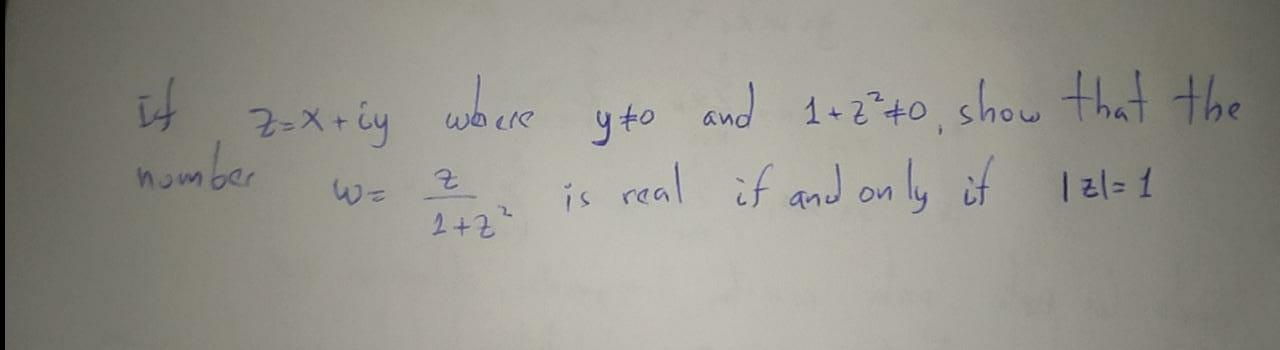 if z=x+iy where y≠0 and 1+z²≠0, show that the
number w= z/1+z² is real if and only if |z|=1